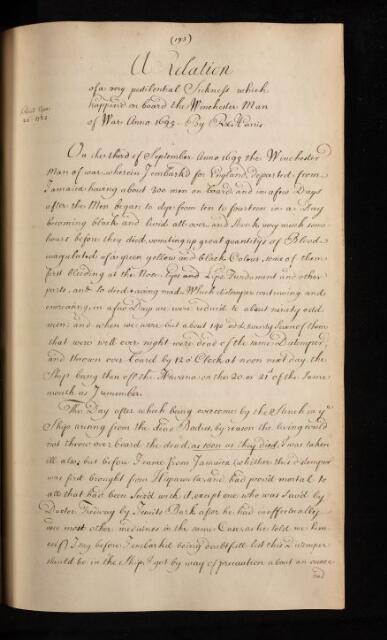 (193)
A Relation
of a very pestilential Sickness which
happen'd on board the Winchester Man
of War Anno 1695. By
On the third of September Anno 1695 the Winchester
Man of war wherein I embark'd for England departed from
Jamaica having about 300 men on board and in a few Days
after the Men began to dye from ten to fourteen in a Day
becoming black and livid all over and stunk very much some
hours before they died, vomiting up great quantitys of Blood
coagulated of a green yellow and black Colour, some of them
first bleeding at the Nose, Eyes and Lips Fundament and other
parts, and so died raving mad. Which distemper continuing and
encreasing in a few Days we were reduc'd to about ninety odd
men: and when we were but about 140 odd, twenty seven of them
that were well over night were dead of the same Distemper,
and thrown over board by 12 o'Clock at noon next day the
Ship being then off the Havana on the 20 or 21st of the same
month as I remember.
The Day after which being overcome by the Stench in ye
Ship arising from the dead Bodies, by reason the living could
not throw over board the dead as soon as they died, I was taken
ill also; but before I came from Jamaica (whither this distemper
was first brought from Hispaniola and had prov'd mortal to
all that had been seiz'd with it, except one who was sav'd by
Doctor by Jesuits Bark after he had ineffectually
us'd most other medicines in the same Case, as he told me
I say before I embark'd being doubtfull lest this Distemper
should be in the Ship, I got by way of precaution about an ounce
and